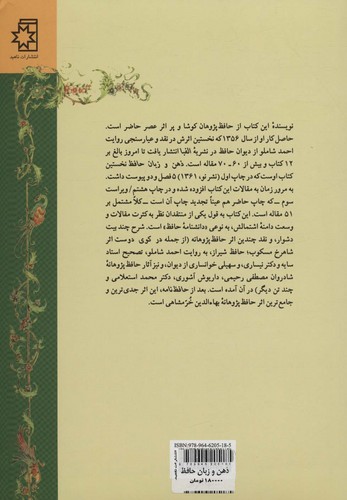 انتشارات ناهید
نویسندهٔ این کتاب از حافظ‌پژوهان کوشا و پر اثر عصر حاضر است.
حاصل کار او از سال ۱۳۵۶ که نخستین اثرش در نقد و عیارسنجی روایت
احمد شاملو از دیوان حافظ در نشریهٔ الفبا انتشار یافت تا امروز بالغ بر
۱۲ کتاب و بیش از ۶۰ - ۷۰ مقاله است. ذهن و زبان حافظ نخستین
کتاب اوست که در چاپ اول (نشر نو، ۱۳۶۱) ۵ فصل و دو پیوست داشت.
به مرور زمان به مقالات این کتاب افزوده شده و در چاپ هشتم / ویراست
سوم ــ که چاپ حاضر هم عیناً تجدید چاپ آن است ــ کلاً مشتمل بر
۵۱ مقاله است. این کتاب به قول یکی از منتقدان نظر به کثرت مقالات و
وسعت دامنهٔ اشتمالش، به نوعی «دانشنامهٔ حافظ» است. شرح چند بیت
دشوار، و نقد چندین اثر حافظ پژوهانه (از جمله در کوی دوست اثر
شاهرخ مسکوب؛ حافظ شیراز، به روایت احمد شاملو، تصحیح استاد
سایه و دکتر نیساری، و سهیلی خوانساری از دیوان، و نیز آثار حافظ پژوهانهٔ
شادروان مصطفی رحیمی، داریوش آشوری، دکتر محمد استعلامی و
چند تن دیگر) در آن آمده است. بعد از حافظ‌نامه، این اثر جدی‌ترین و
جامع‌ترین اثر حافظ پژوهانهٔ بهاءالدین خُرّمشاهی است.
ISBN: 978-964-6205-18-5
ذهن و زبان حافظ
۱۸۰۰۰۰ تومان